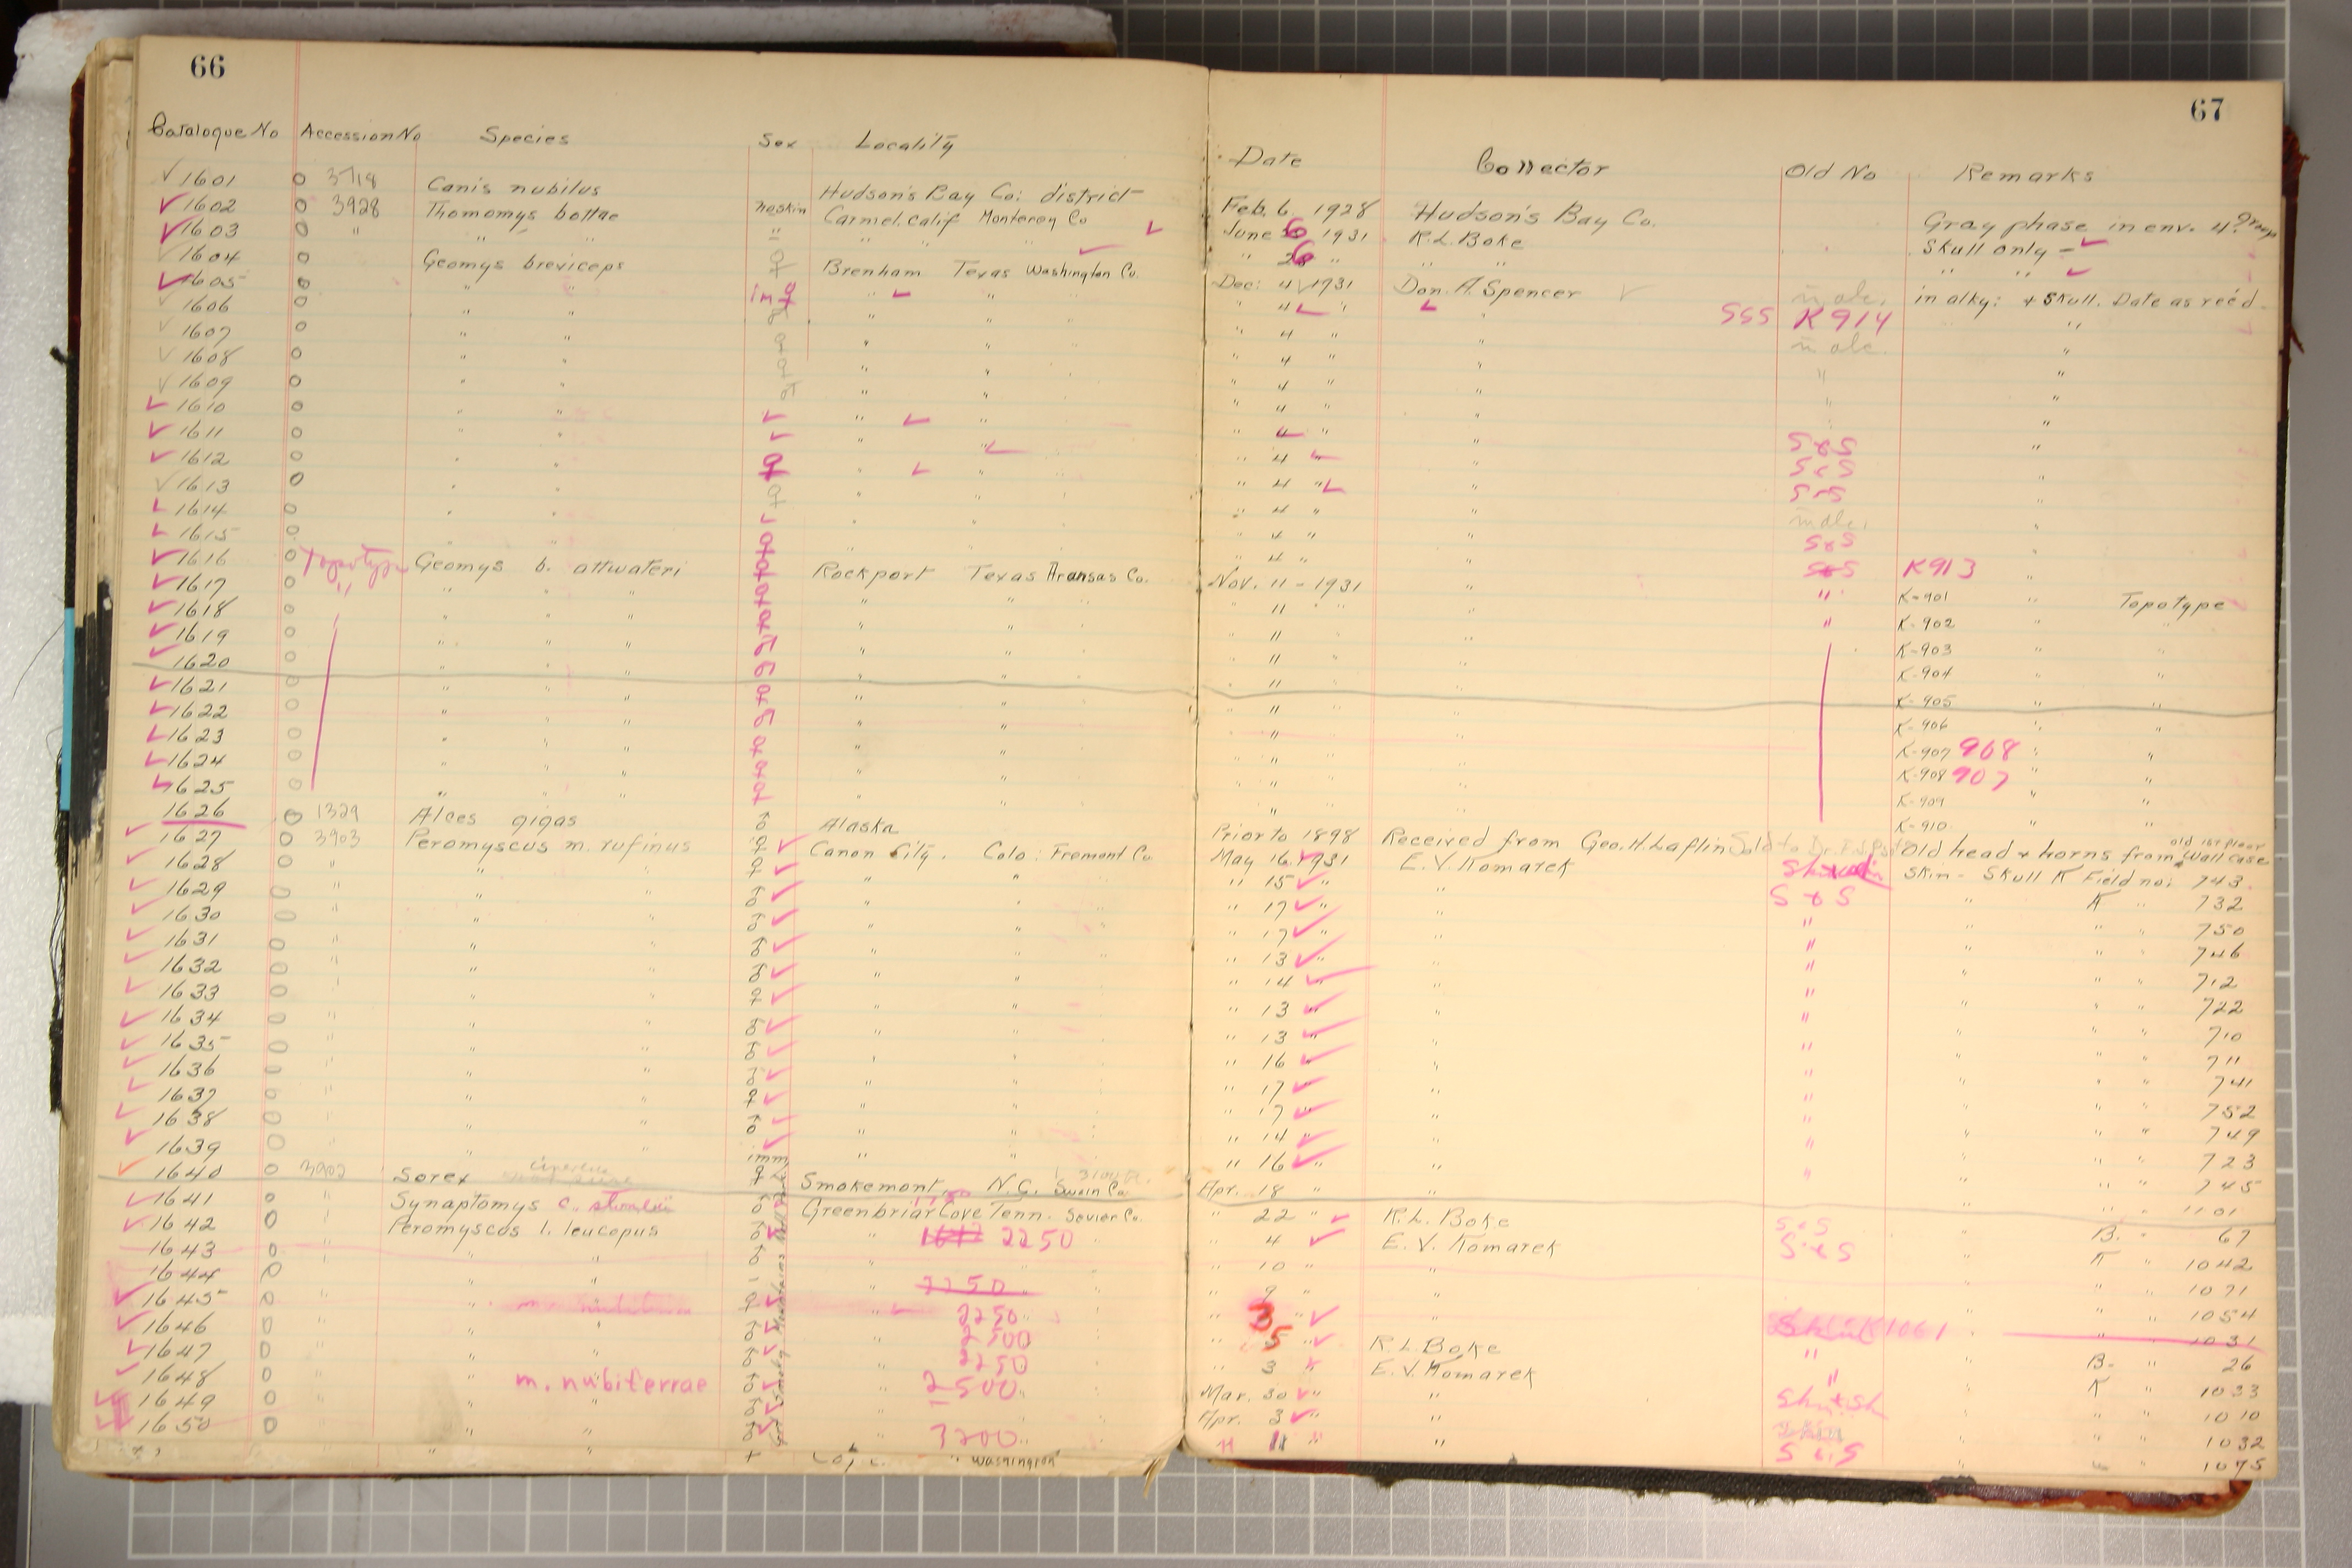 66
Catalogue No Accession No Species Sex Locality
1601 O 3718 Canis nubilus Hudson's Bay Co. district
1602 O 3928 Thomomys bottae no skin Carmel, Calif Monterey Co
1603 O " " " " " "
1604 O Geomys breviceps ♀ Brenham Texas Washington Co.
1605 O " " im ♀ " " "
1606 O " " " " "
1607 O " " ♀ " " "
1608 O " " ♀ " " "
1609 O " " " " "
1610 O " " " "
1611 O " " " "
1612 O " " ♀ " "
1613 O " " ♀ " "
1614 O " " " "
1615 O " " ♀ " "
1616 O Topotype Geomys b. attwateri ♀ Rockport Texas Aransas Co.
1617 O " " " " ♀ " "
1618 O " " " ♀ " "
1619 O " " " ♂ " "
1620 O " " " ♂ " "
1621 O " " " ♀ " "
1622 O " " " ♂ " "
1623 O " " " ♀ " "
1624 O " " " ♀ " "
1625 O " " " ♀ " "
1626 O 1329 Alces gigas ♂ Alaska
1627 O 3903 Peromyscus m. rufinus ♀ Canon City. Colo: Fremont Co.
1628 O " " " ♀ " "
1629 O " " " ♂ " "
1630 O " " " ♂ " "
1631 O " " " ♂ " "
1632 O " " " ♂ " "
1633 O " " " ♀ " "
1634 O " " " ♂ " "
1635 O " " " ♂ " "
1636 O " " " ♂ " "
1637 O " " " ♀ " "
1638 O " " " ♂ " "
1639 O " " " imm " "
1640 O 3902 Sorex ♀ Smokemont, N.C. Swain Co.
1641 O " Synaptomys c. stonei ♂ Greenbriar Cove Tenn. Sevier Co.
1642 O " Peromyscos l. leucopus ♂ " 2250 "
1643 O " " " ♂ "
1644 O " " " " 2250
1645 O " " ♀ " 2250
1646 O " " " ♂ " 2500
1647 O " " " ♂ " 2250
1648 O " " m. nubiterrae ♂ " 2500
1649 O " " " ♂ "
1650 O " " " ♂ " 3200
Great Smoky Mountains Natl Park
" " " Washington
67
Date Collector Old No Remarks
Feb. 6. 1928 Hudson's Bay Co. Gray phase in env. 4? Group
June 6 1931 R.L. Boke Skull only -
" 6 " " " " "
Dec: 4 1931 Don. A. Spencer in alc. in alky: + Skull. Date as rec'd
" 4 " " SSS K914 "
" 4 " " in alc. "
" 4 " " " "
" 4 " " " "
" 4 " " " "
" 4 " " S&S "
" 4 " " S&S "
" 4 " " S&S "
" 4 " " in alc. "
" 4 " " S&S "
" 4 " " S&S K913 "
Nov. 11 - 1931 " " K-901 " Topotype
" 11 " " " K-902 " "
" 11 " " K-903 " "
" 11 " " K-904 " "
" 11 " " K-905 " "
" 11 " " K-906 " "
" 11 " " K-907 908 " "
" 11 " " K-908 907 " "
" 11 " " K-909 " "
" 11 " " K-910 " "
Prior to 1898 Received from Geo. H. Laflin Sold to Dr. Old head & horns from old 1st floor Wall case
May 16. 1931 E. V. Komarek Skin - Skull K Field no: 743.
" 15 " " S & S " K " 732
" 17 " " " " " " 750
" 17 " " " " " " 746
" 13 " " " " " " 712
" 14 " " " " " " 722
" 13 " " " " " " 710
" 13 " " " " " " 711
" 16 " " " " " " 741
" 17 " " " " " " 752
" 17 " " " " " " 749
" 14 " " " " " " 723
" 16 " " " " " " 745
Apr. 18 " " " " 1101
" 22 " R.L. Boke S&S " B. " 67
" 4 " E. V. Komarek S&S " K " 1042
" 10 " " " " 1071
" 9 " " " " 1054
" 3 " K1061 " " 1031
" 5 " R.L. Boke " " B- " 26
" 3 " E.V. Komarek " " K " 1033
Mar. 30 " " " " " 1010
Apr. 3 " " " " 1032
" 11 " " S&S " " " 1075